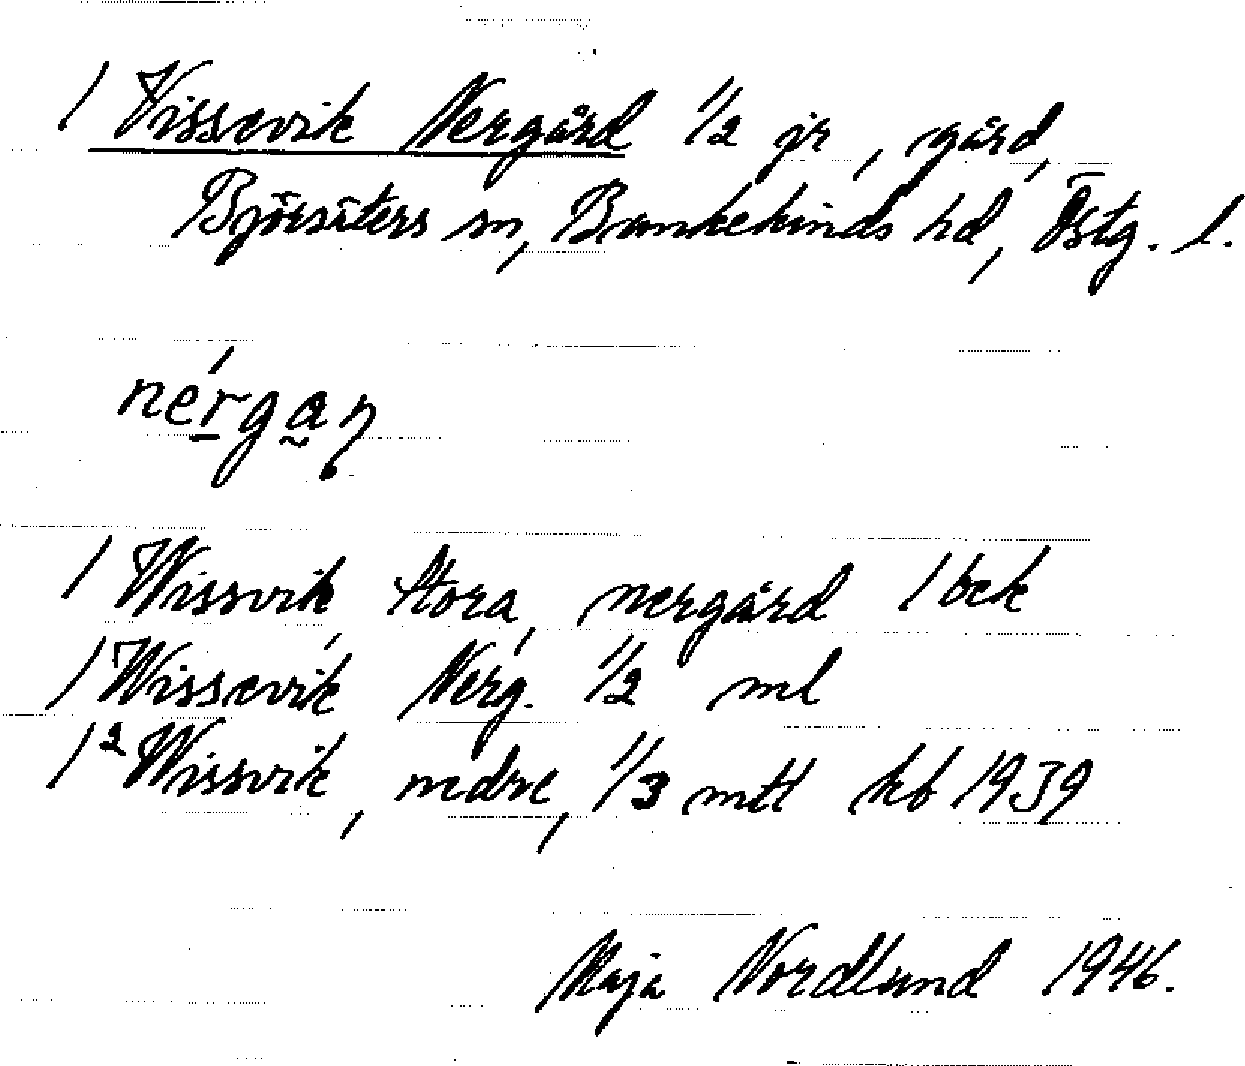 1 Vissevik Nergård 1/2 jr, gård,
Björsäters sn, Bankekinds hd, Östg. l.
nérgaṇ
1 Wissvik, Stora, nergård 1 bek
1 Wissevik Nerg. 1/2 ml
1² Wissvik, nedre, 1/3 mtt kb 1939
Maja Nordlund 1946.